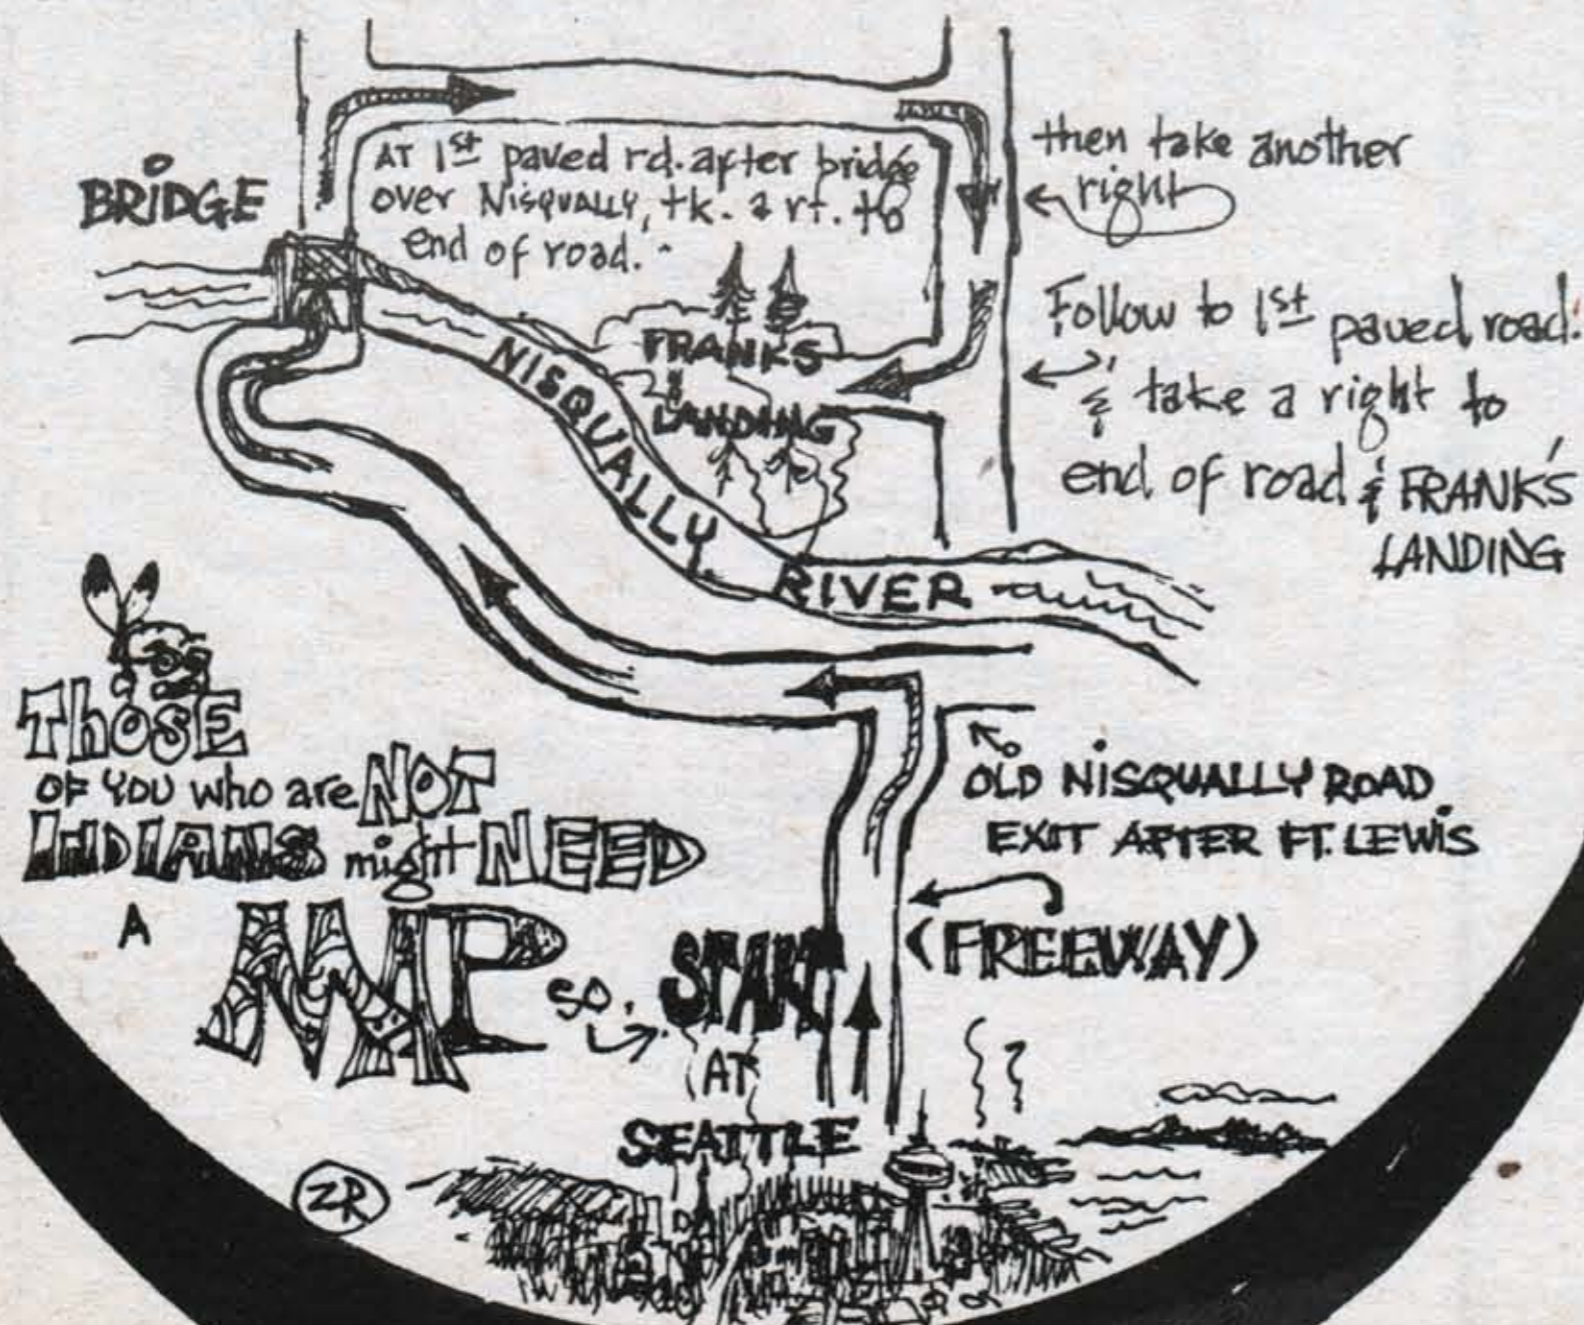 BRIDGE
AT 1st paved rd. after bridge
over NISQUALLY, tk. a rt. to
end of road.
then take another
right
Follow to 1st paved road.
& take a right to
end of road & FRANK'S
LANDING
FRANKS
LANDING
NISQUALLY RIVER
ThOSE
OF YOU who are NOT
INDIANS might NEED
A MAP so START
AT
SEATTLE
OLD NISQUALLY ROAD
EXIT AFTER FT. LEWIS
(FREEWAY)
ZR